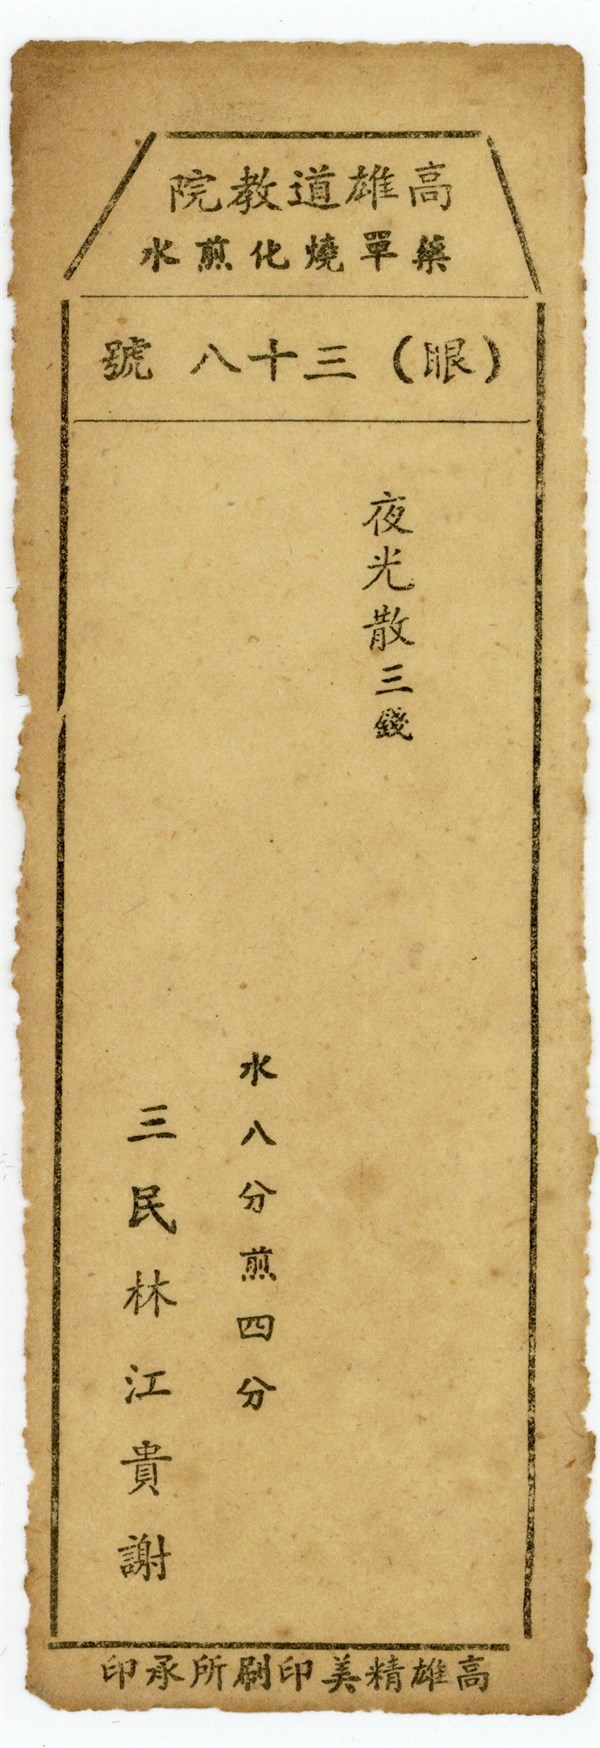 高雄道教院
藥單燒化煎水
(眼)三十八號
夜光散三錢
水八分煎四分
三民林江貴謝
高雄精美印刷所承印